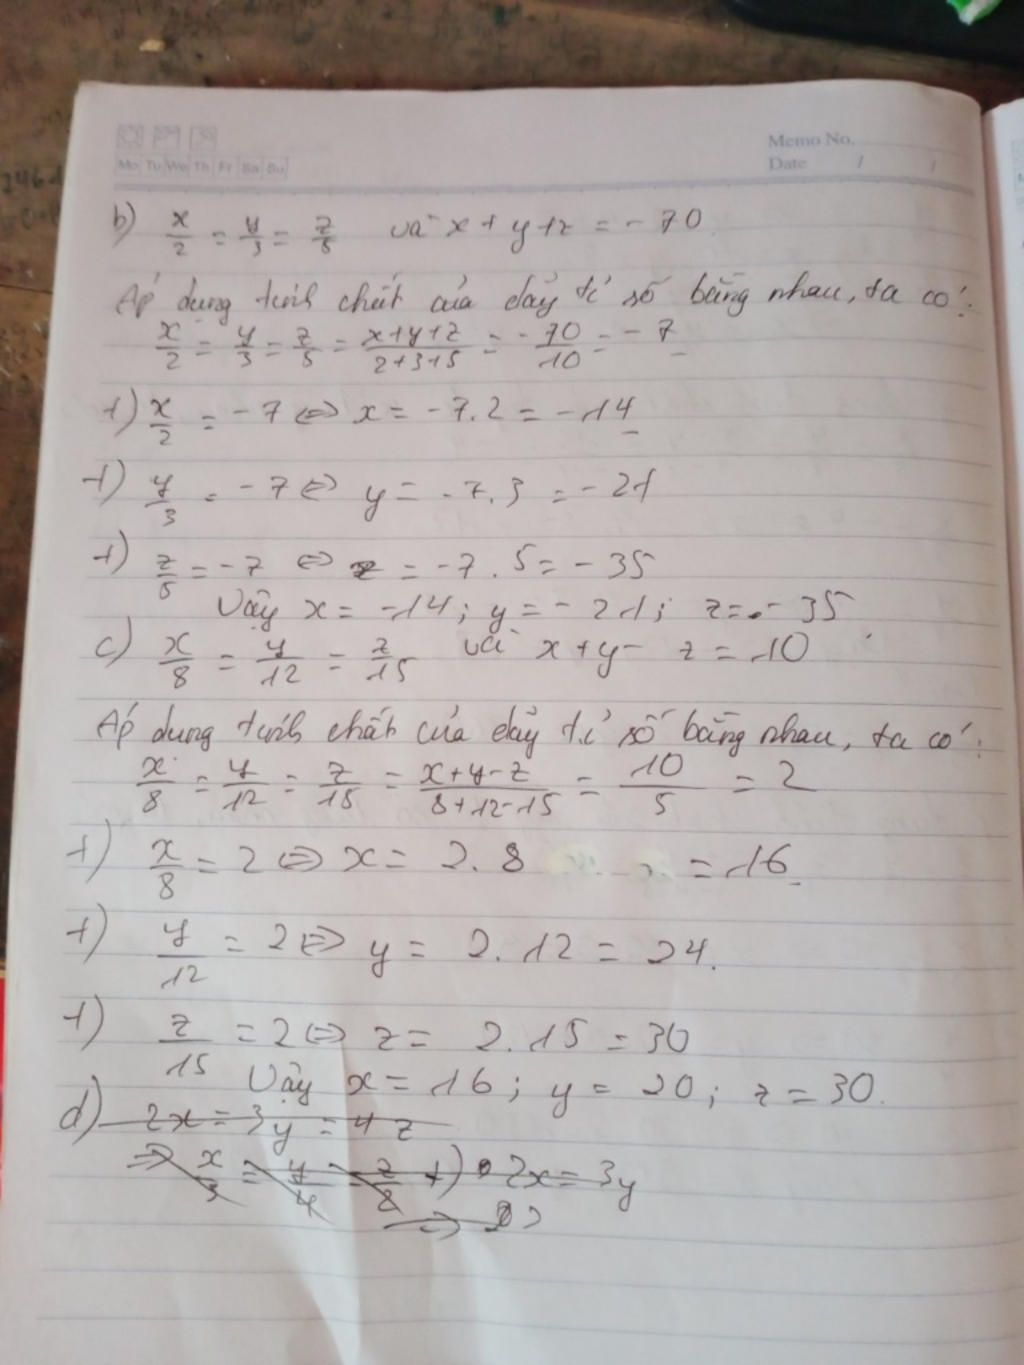 Memo No.
Mo Tu We Th Fr Sa Su
Date / /
b) x/2 = y/3 = z/5 và x + y + z = - 70
Áp dụng tính chất của dãy tỉ số bằng nhau, ta có:
x/2 = y/3 = z/5 = (x+y+z)/(2+3+5) = -70/10 = - 7
+) x/2 = - 7 ⇔ x = -7.2 = - 14
+) y/3 = - 7 ⇔ y = -7.3 = - 21
+) z/5 = - 7 ⇔ z = -7.5 = - 35
Vậy x = -14; y = - 21; z = - 35
c) x/8 = y/12 = z/15 và x + y - z = 10
Áp dụng tính chất của dãy tỉ số bằng nhau, ta có:
x/8 = y/12 = z/15 = (x+y-z)/(8+12-15) = 10/5 = 2
+) x/8 = 2 ⇔ x = 2.8 = 16
+) y/12 = 2 ⇔ y = 2.12 = 24.
+) z/15 = 2 ⇔ z = 2.15 = 30
Vậy x = 16; y = 20; z = 30.
d) 2x = 3y = 4z
⇒ x/3 = y/4 = z/8 +) 2x = 3y
⇒